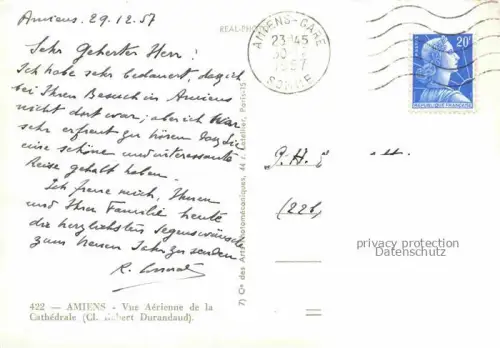 Amiens. 29.12.57
Sehr Geherter Herr!
Ich habe sehr bedauert, dass ich
bei Ihren Besuch in Amiens
nicht dort war; aber ich war
sehr erfreut zu hören dass Sie
eine schöne und interessante
Reise gehabt haben.
Ich freue mich, Ihnen
und Ihrer Familie heute
die herzlichsten Segenswünsche
zum neuen Jahr zu senden
R.
422 — AMIENS - Vue Aérienne de la
Cathédrale (Cl. Robert Durandaud).
REAL-PHO
7) Cie des Arts Photomécaniques, 44 r. Letellier, Paris-15
AMIENS-GARE
23-45
30
1957
SOMME
POSTES
20F
REPUBLIQUE FRANÇAISE
(22b)
privacy protection
Datenschutz